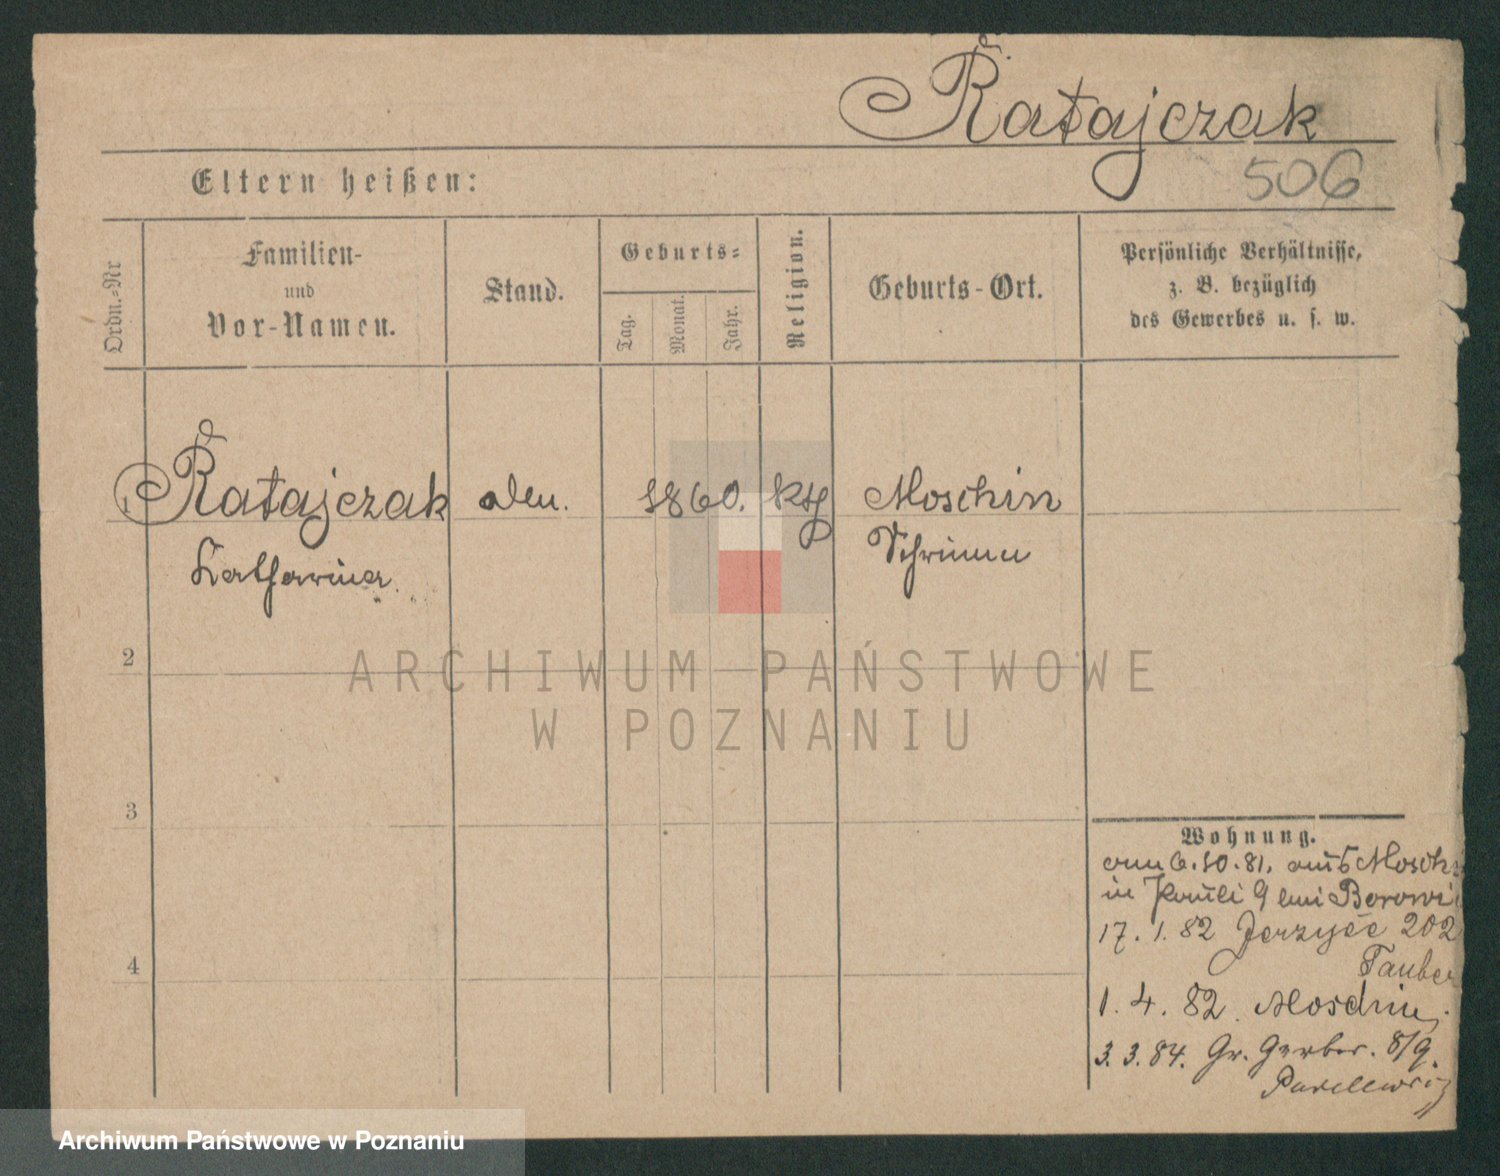 Ratajczak
506
Eltern heißen:
Ordn.-Nr
Familien-
und
Vor-Namen.
Stand.
Geburts-
Tag.
Monat.
Jahr.
Religion.
Geburts-Ort.
Persönliche Verhältnisse,
z. B. bezüglich
des Gewerbes u. s. w.
1. Ratajczak 1860. kth Moschin
Katharina. Schrimm
2
3
4
ARCHIWUM PAŃSTWOWE
W POZNANIU
Wohnung.
6.10.81. aus Mosch
in Pauli 9 bei Borowi
17.1.82 Jerzyce 202
Tauber
1.4.82. Moschin
3.3.84. Gr. Gerber. 8/9.
Archiwum Państwowe w Poznaniu